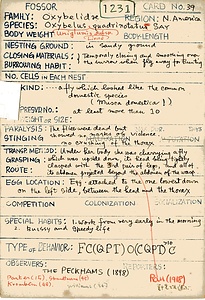 FOSSOR 1231 CARD No. 39
FAMILY: Oxybelidae REGION: N. America
SPECIES: Oxybelus quadrinotatus Say
BODY WEIGHT BODY-LENGTH
NESTING GROUND: in Sandy ground
CLOSING MATERIALS: temporary closing and smoothing over
BURROWING HABIT: the surface when fly away for hunting
NO. CELLS in EACH NEST
KIND: a fly which looked like the common
domestic species
(Musca domestica)
PREY: NO. at least more than 10
WEIGHT or SIZE:
PARALYSIS: The flies was dead but
STINGING: showed no marks of violence,
no crushing of the thorax
TRANSP. METHOD: Under her body she was carrying a fly
GRASPING: which was upside down, its head being tightly
ROUTE: grasped with the 3rd pair of legs, and all of
its abdomen projected beyond the abdomen of the wasp.
EGG LOCATION: Egg attached to the lowest down
on the left side, between the head and the thorax
COMPETITION COLONIZATION
SPECIAL HABITS: 1. Works from very early in the morning
2. Fussy and Speedy life
TYPE of BEHAVIOR: FC(QPT)O(CQPD)
OBSERVERS: REPORTERS:
THE PECKHAMS (1898)